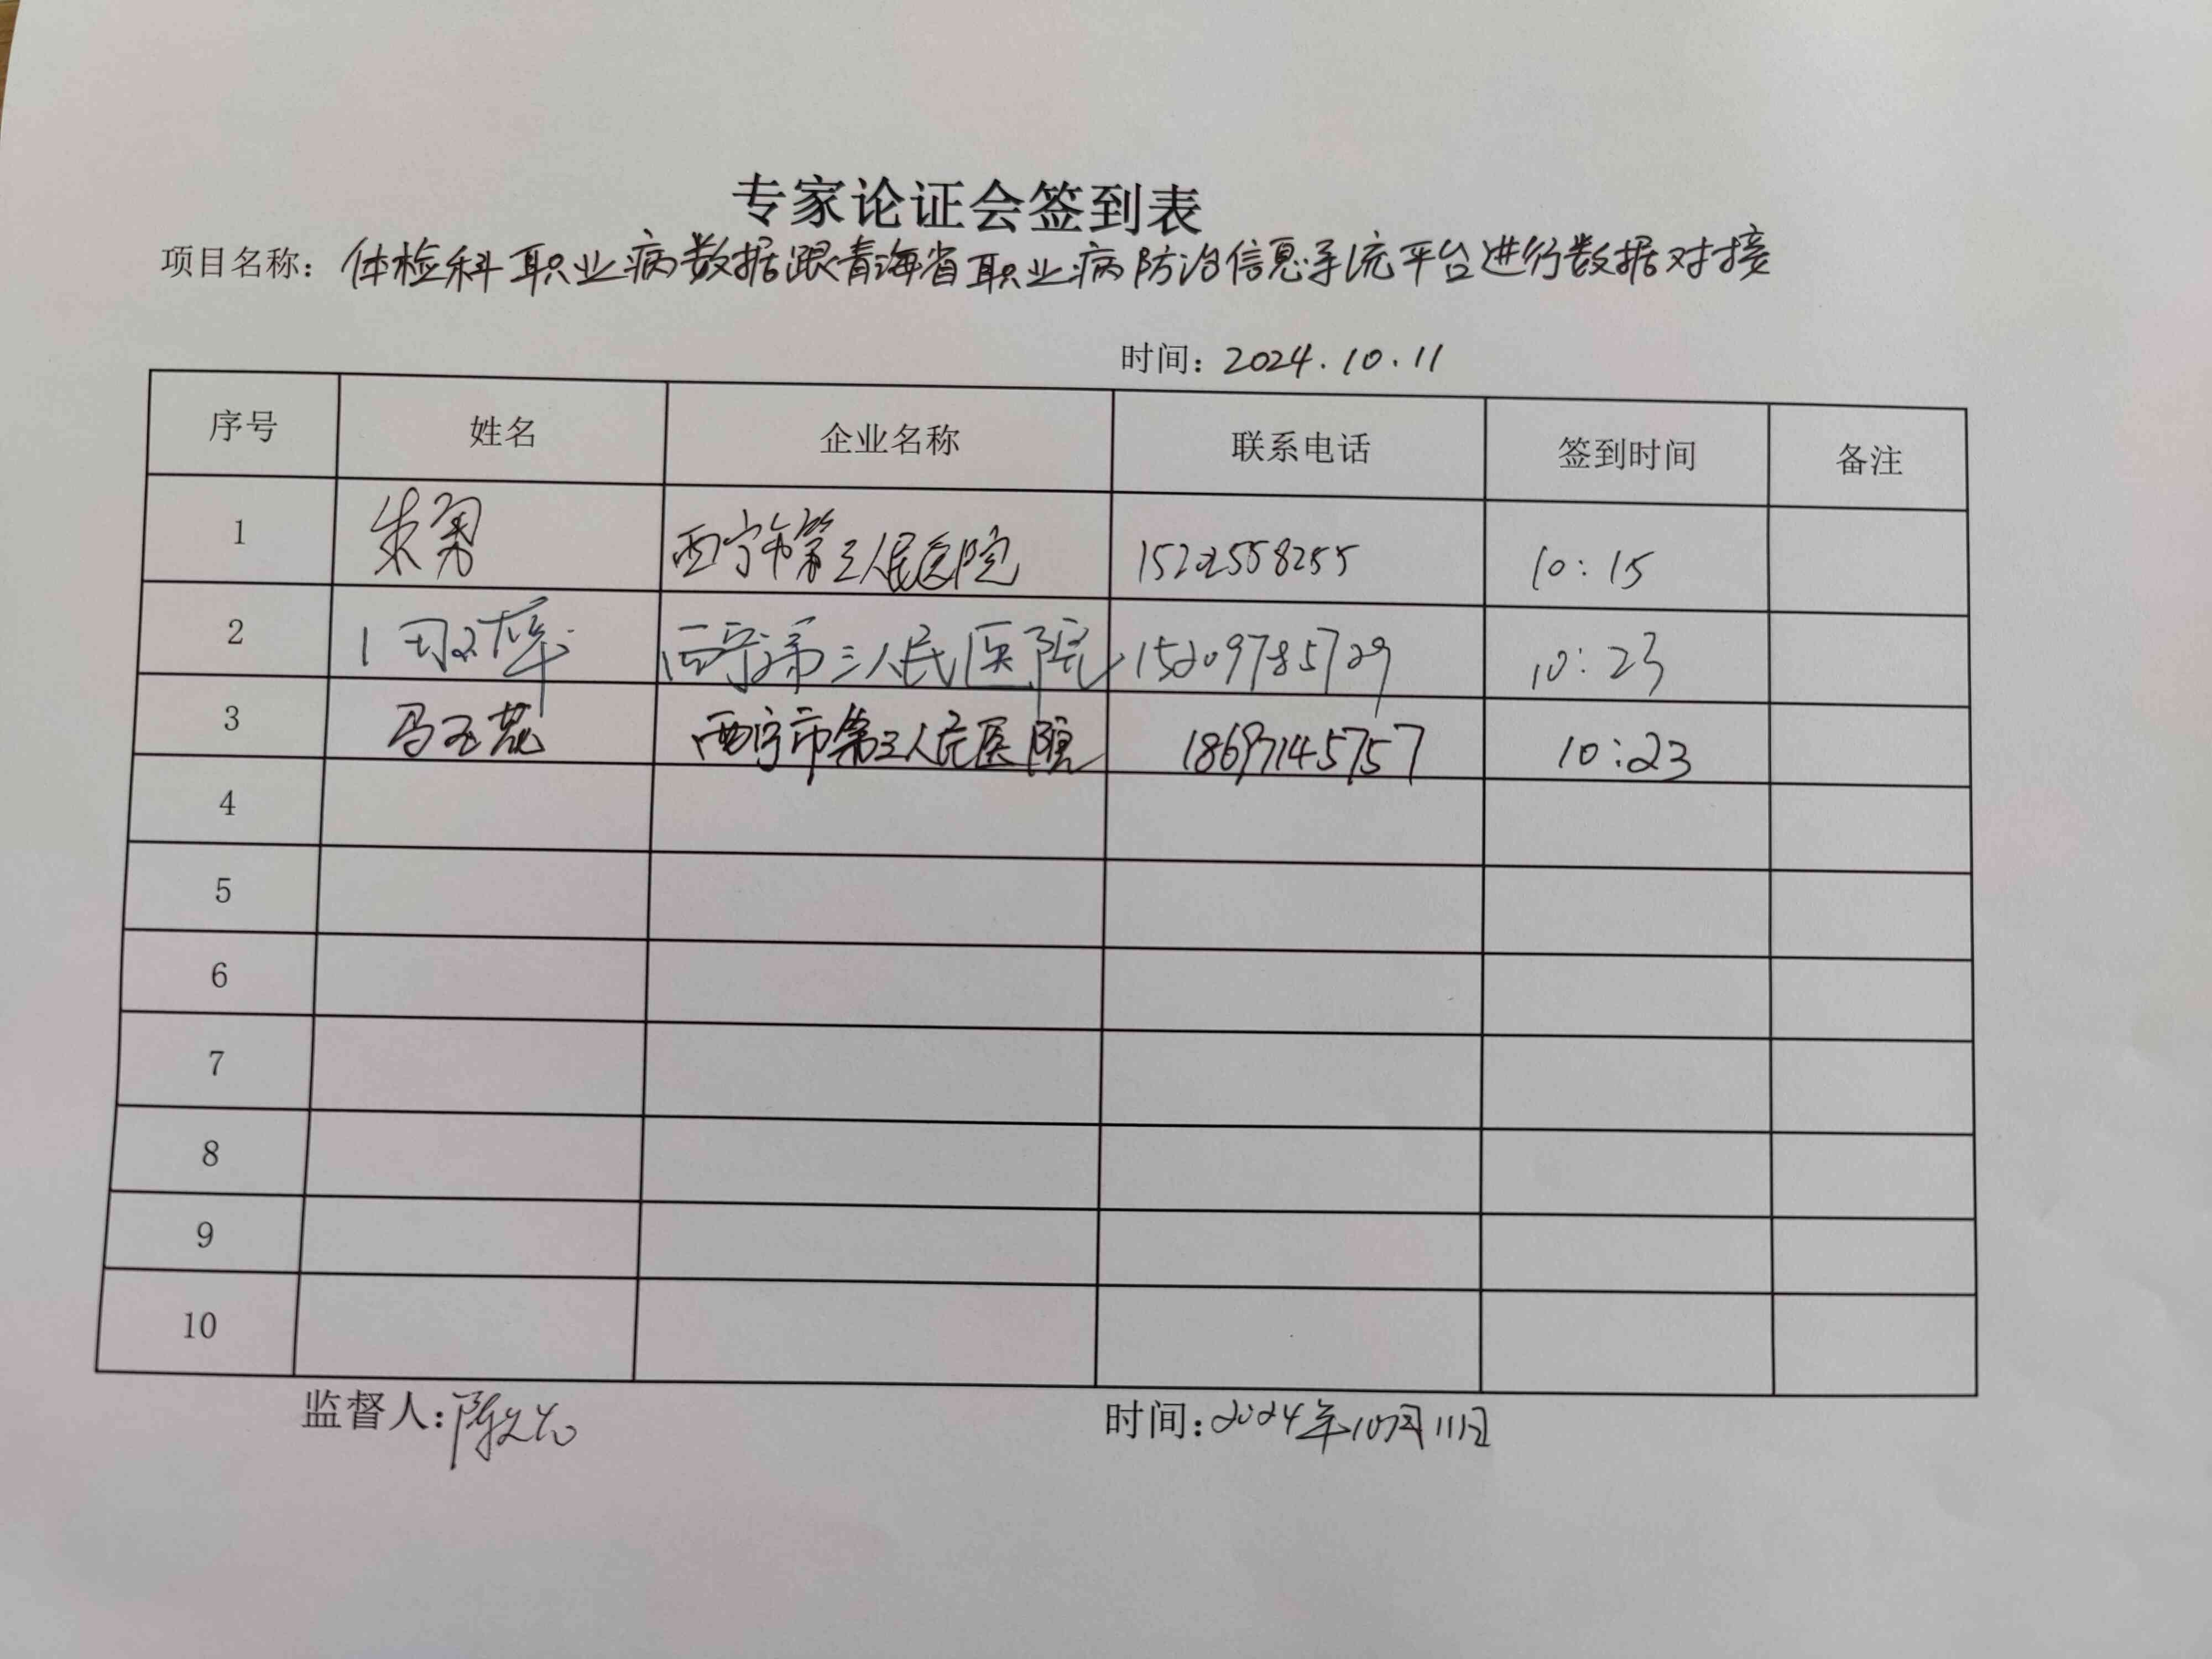 专家论证会签到表
项目名称：体检科职业病数据跟青海省职业病防治信息系统平台进行数据对接
时间：2024.10.11
序号 姓名 企业名称 联系电话 签到时间 备注
1 朱勇 西宁市第三人民医院 10：15
2 西宁市第三人民医院 15209785729 10：23
3 西宁市第三人民医院 18697145757 10：23
4
5
6
7
8
9
10
监督人： 时间：2024年10月11日